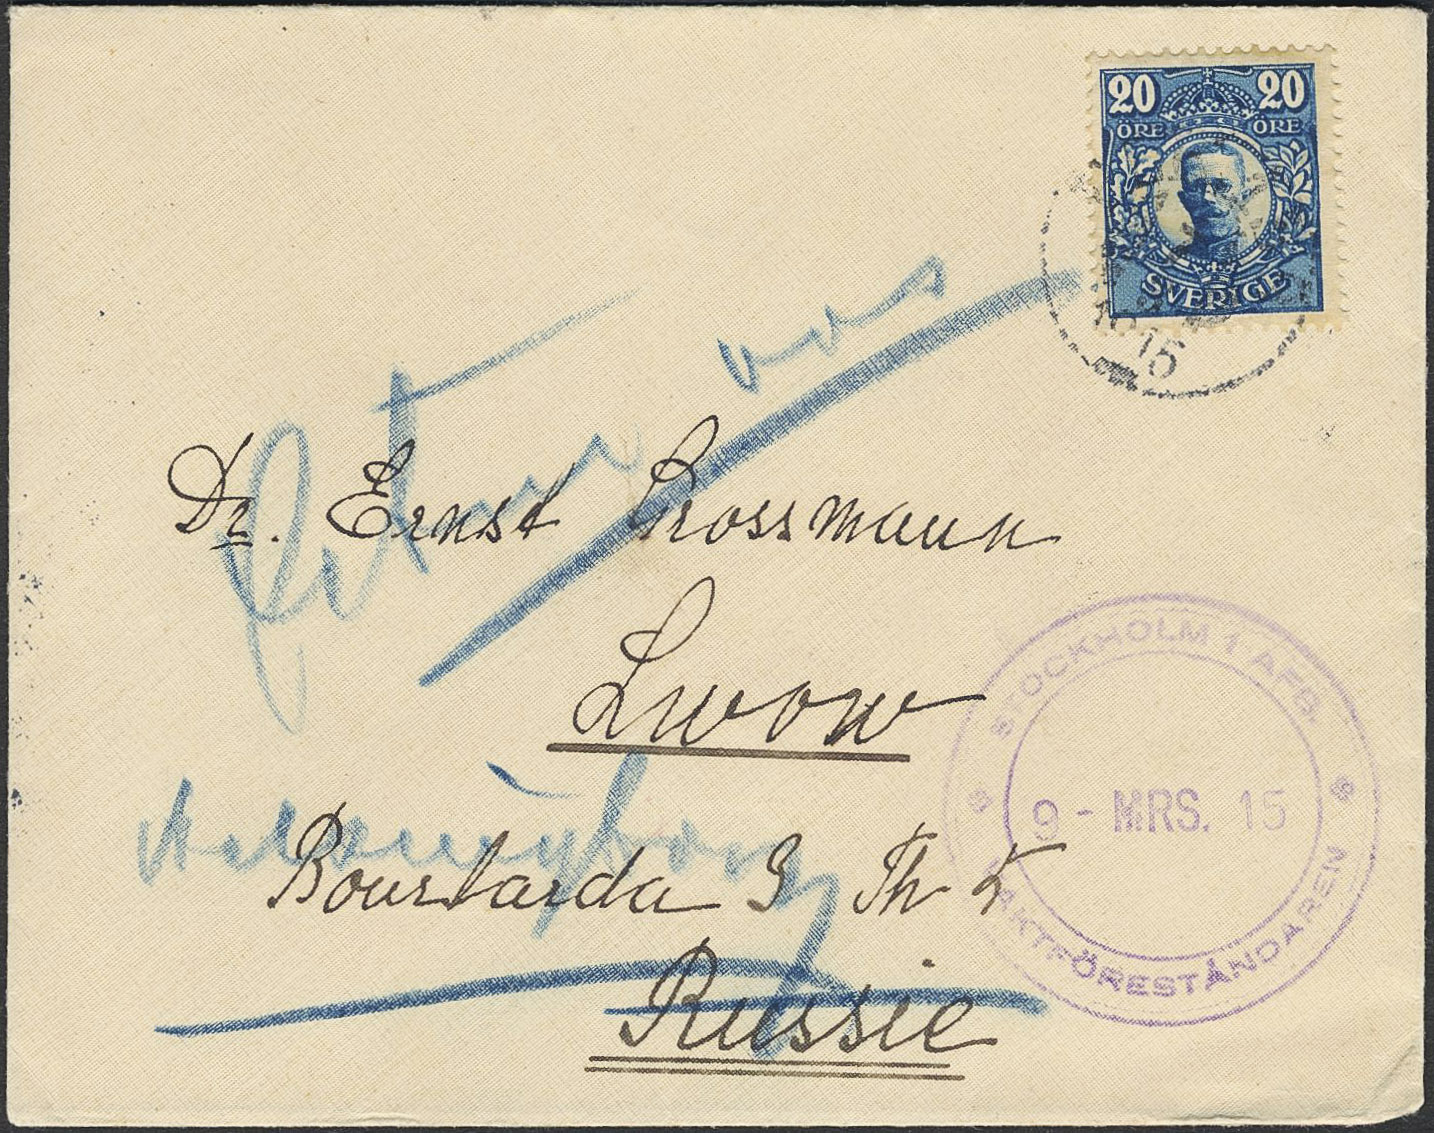 20 20
ÖRE ÖRE
SVERIGE
15
Retur
Dr. Ernst Grossmann
Lwow
Bourlarda 3 Th
Russie
STOCKHOLM 1 AFG.
9 - MRS. 15
VAKTFÖRESTÅNDAREN